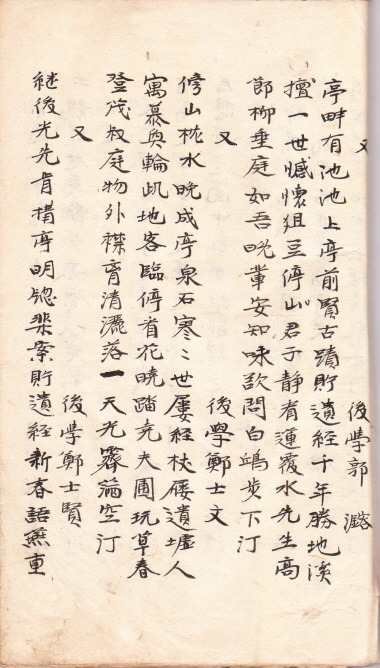 又 後學郭 潞
亭畔有池池上亭前賢古蹟貯遺經千年勝地溪
擅一世憾懷俎豆停山君子静看蓮覆水先生高
節柳垂庭如吾晩輩安知味欲問白鷗步下汀
又 後學鄭士文
傍山枕水晩成亭泉石寒〻世屢經杖屨遺墟人
寓慕奐輪此地客臨停看花曉踏尭夫圃玩草春
登茂叔庭物外襟胷清灑落一天光霽滿空汀
又 後學鄭士賢
継後光先肯構亭明窓棐案貯遺經新春語燕重